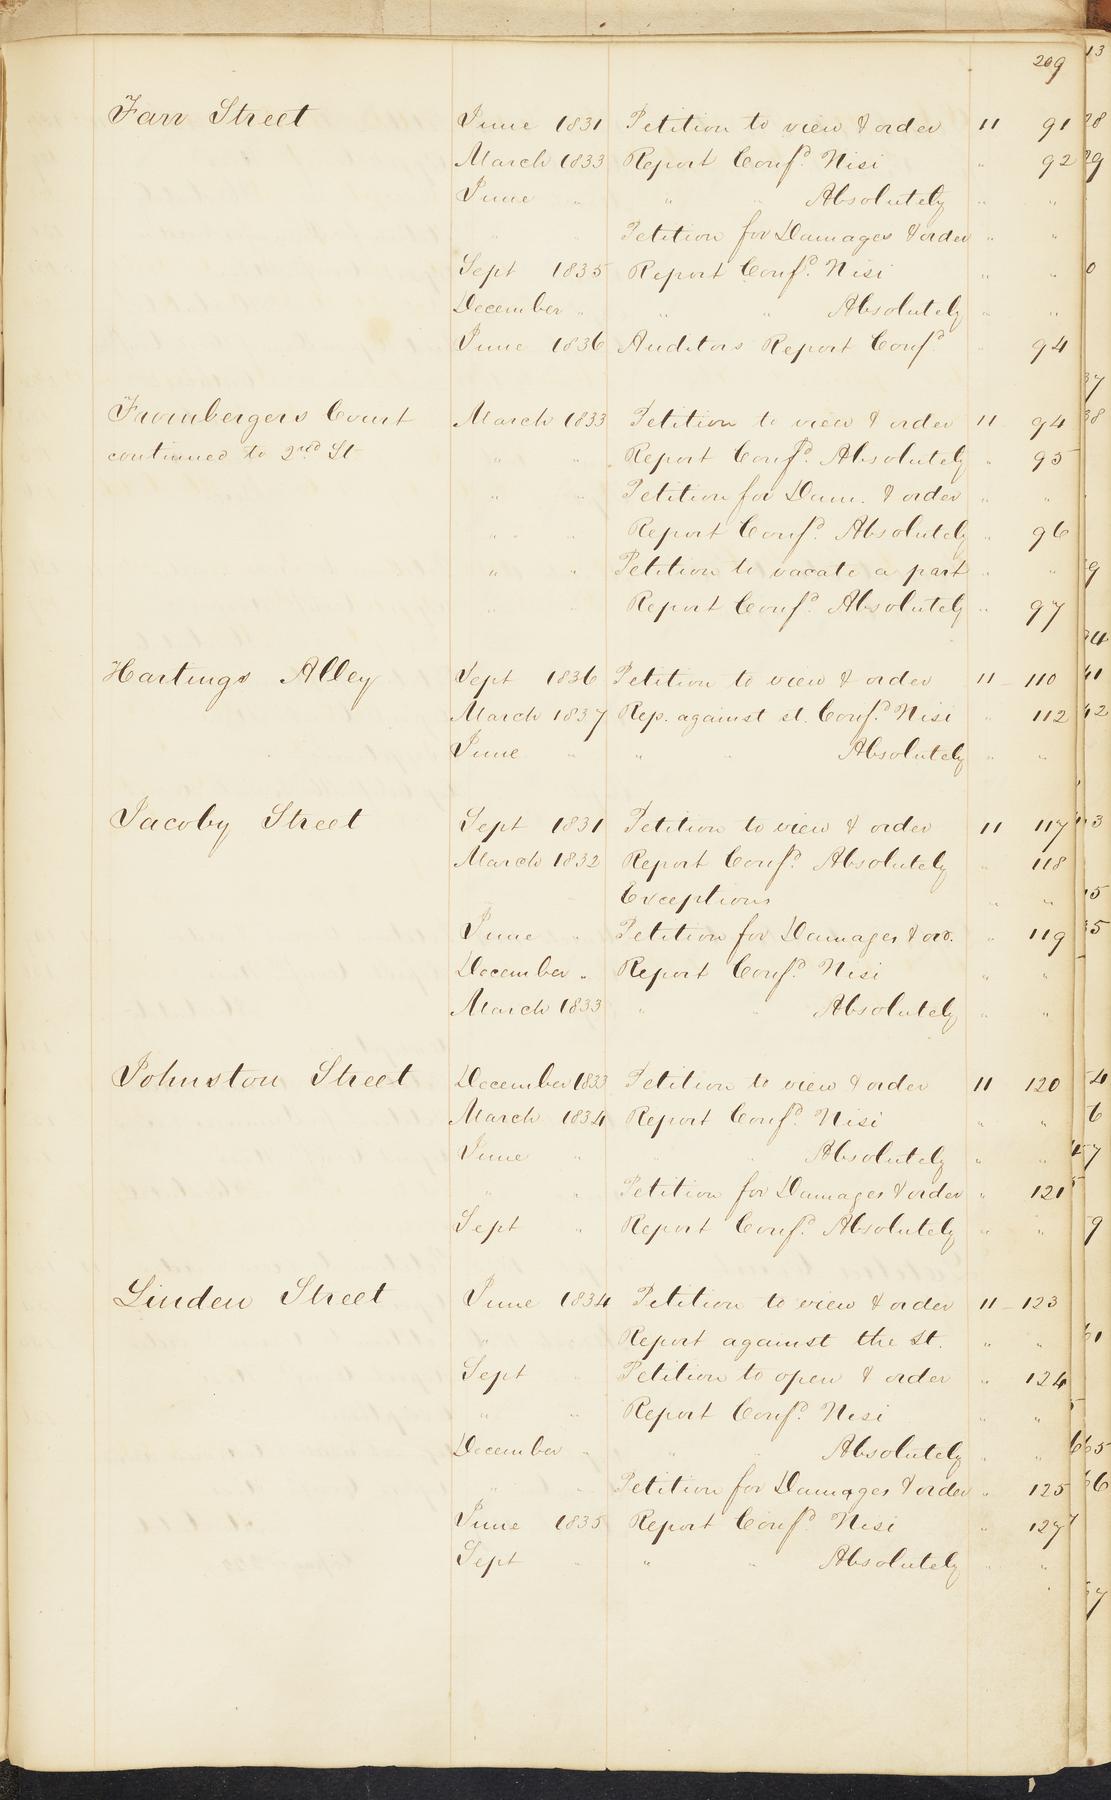 209
Farr Street June 1831 Petition to view & order 11 91
March 1833 Report Conf.d Nisi " 92
June " " " Absolutely " "
" " Petition for Damages & order " "
Sept 1835 Report Conf.d Nisi " "
December " " " Absolutely " "
June 1836 Auditors Report Conf.d " 94
Frombergers Court March 1833 Petition to view & order 11 94
continued to 2nd St " " Report Conf.d Absolutely " 95
" " Petition for Dam. & order " "
" " Report Conf.d Absolutely " 96
" " Petition to vacate a part " "
" " Report Conf.d Absolutely " 97
Hartings Alley Sept 1836 Petition to view & order 11 110
March 1837 Rep. against st. Conf.d Nisi " 112
June " " " Absolutely " "
Jacoby Street Sept 1831 Petition to view & order 11 117
March 1832 Report Conf.d Absolutely " 118
Exceptions " "
June " Petition for Damages & ord. " 119
December " Report Conf.d Nisi " "
March 1833 " " Absolutely " "
Johnston Street December 1833 Petition to view & order 11 120
March 1834 Report Conf.d Nisi " "
June " " " Absolutely " "
" " Petition for Damages & order " 121
Sept " Report Conf.d Absolutely " "
Linden Street June 1834 Petition to view & order 11 123
" Report against the St. " "
Sept " Petition to open & order " 124
" " Report Conf.d Nisi " "
December " " " Absolutely " "
" " Petition for Damages & order " 125
June 1835 Report Conf.d Nisi " 127
Sept " " " Absolutely " "